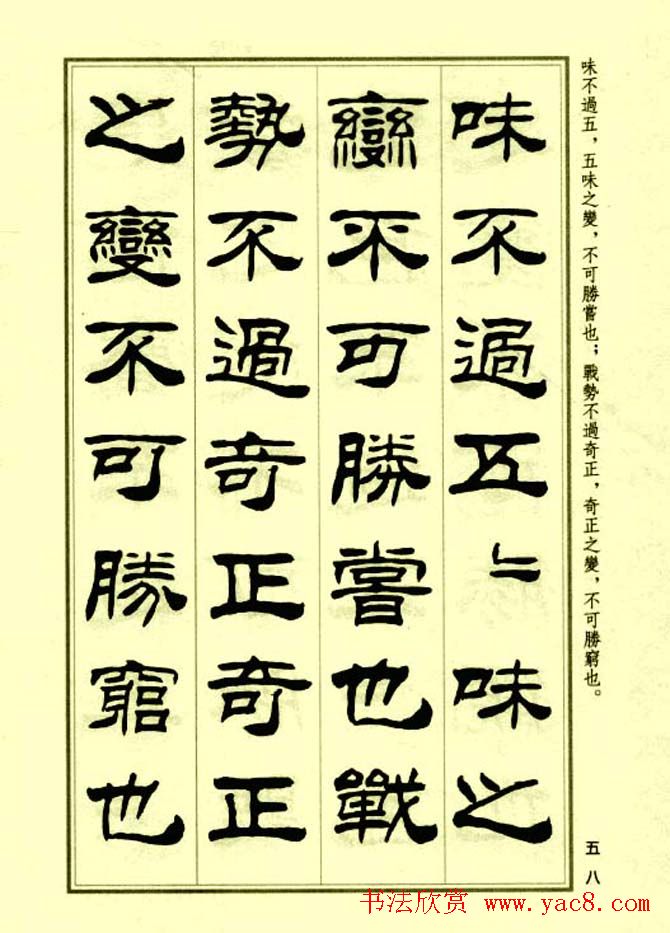 味不過五，五味之變，不可勝嘗也；戰勢不過奇正，奇正之變，不可勝窮也。
五八
味不過五〻味之
變不可勝嘗也戰
勢不過奇正奇正
之變不可勝窮也
书法欣赏 www.yac8.com